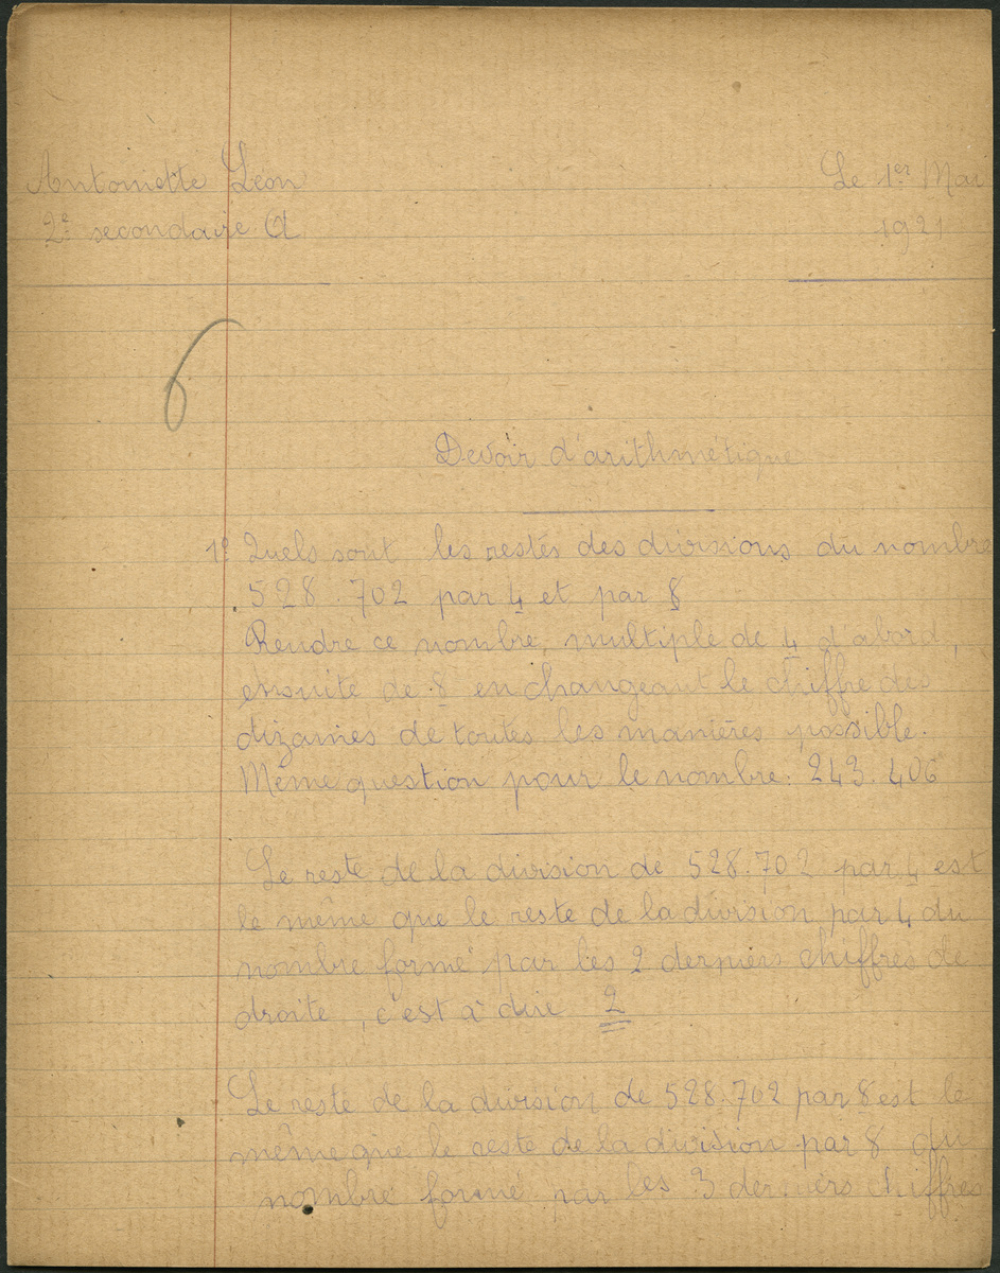 Antoinette Léon
Le 1er Mai
2e secondaire A
1921
Devoir d'arithmétique
1° Quels sont les restes des divisions du nombre
528.702 par 4 et par 8
Rendre ce nombre, multiple de 4 d'abord,
ensuite de 8 en changeant le chiffre des
dizaines de toutes les manières possible.
Même question pour le nombre: 243.406
Le reste de la division de 528.702 par 4 est
le même que le reste de la division par 4 du
nombre formé par les 2 derniers chiffres de
droite, c'est à dire 2
Le reste de la division de 528.702 par 8 est le
même que le reste de la division par 8 du
nombre formé par les 3 derniers chiffres